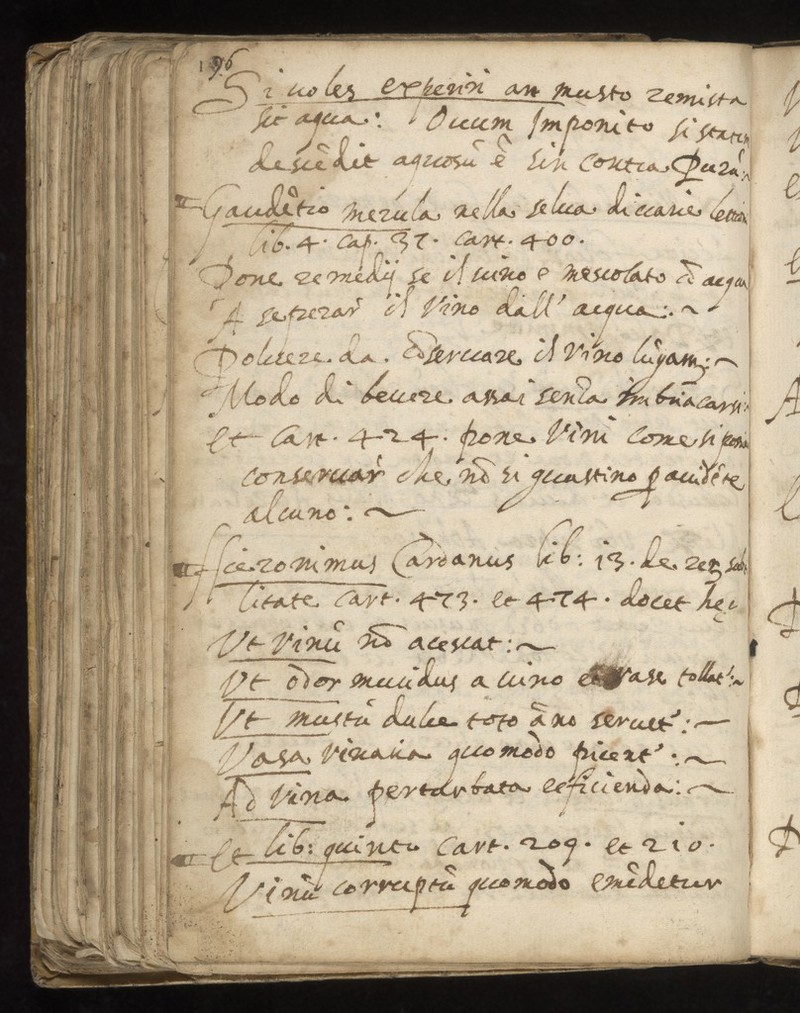 196
Si uoles experiri an musto remista
sit aqua: Ouum Imponito si statim
descēdit aquosū ē sin contra Purū:
Gaudētio merula nella selua di uarie lettion
lib. 4. cap. 37. cart. 400.
Pone remedij se il uino e mescolato cō acqua
A seperar il Vino dall' acqua:~
Poluere da cōseruare il vino lūgam:~
Modo di beuere assai senza imbriacarsi:
et cart. 424. pone Vini come si
conseruar che nō si guastino p accidēte
alcuno:~
Hieronimus Cardanus lib: 13. de rer sub
litate cart. 473. et 474. docet hec
Vt vinū nō acescat:~
Vt odor mucidus a uino et vase tollat':~
Vt mustū dulce toto āno seruet':~
Vasa vinaria quomodo picent':~
Ad vina perturbata reficienda:~
et lib: quinto cart. 209. et 210.
Vinū corruptū quomodo emēdetur